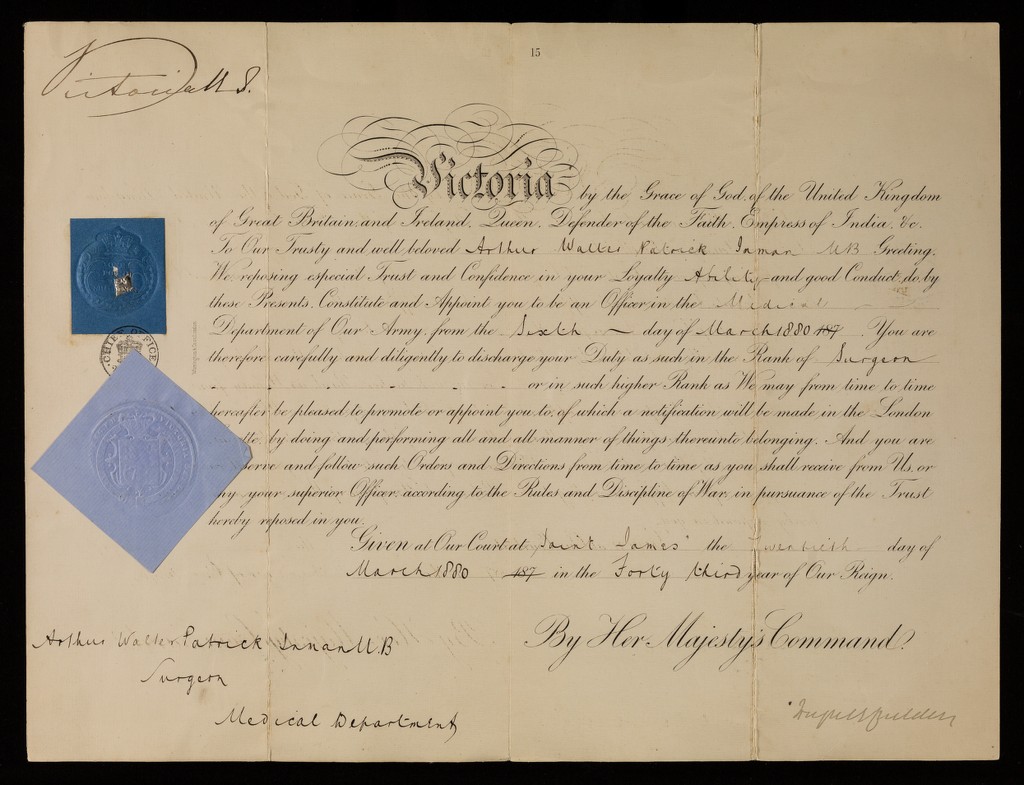 15
Victoria R. I.
Victoria by the Grace of God, of the United Kingdom
of Great Britain and Ireland, Queen, Defender of the Faith, Empress of India, &c.
To Our Trusty and well beloved Arthur Walter Patrick Inman MB Greeting,
We, reposing especial Trust and Confidence in your Loyalty Ability and good Conduct, do, by
these Presents, Constitute and Appoint you to be an Officer in the Medical
Department of Our Army, from the Sixth day of March 1880 187 . You are
therefore carefully and diligently to discharge your Duty as such in the Rank of Surgeon
or in such higher Rank as We may from time to time
hereafter be pleased to promote or appoint you to, of which a notification will be made in the London
by doing and performing all and all manner of things thereunto belonging. And you are
serve and follow such Orders and Directions from time to time as you shall receive from Us, or
your superior Officer, according to the Rules and Discipline of War, in pursuance of the Trust
hereby reposed in you.
CHIEF OFFICE
Given at Our Court at Saint James' the Twentieth day of
March 1880 187 in the Forty third year of Our Reign.
By Her Majesty's Command.
Arthur Walter Patrick Inman M.B
Surgeon
Medical Department